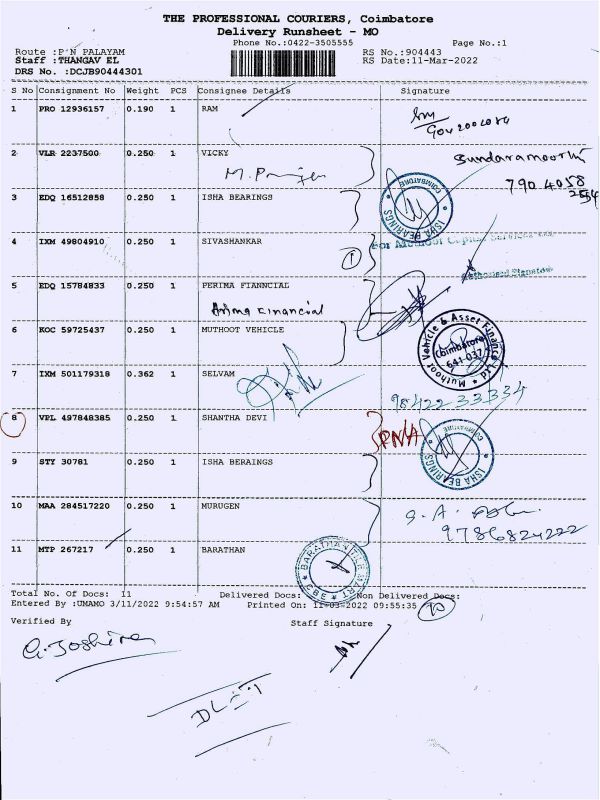 THE PROFESSIONAL COURIERS, Coimbatore
Delivery Runsheet - MO
Phone No.:0422-3505555 Page No.:1
Route :P N PALAYAM RS No.:904443
Staff :THANGAV EL RS Date:11-Mar-2022
DRS No. :DCJB90444301
S No Consignment No Weight PCS Consignee Details Signature
1 PRO 12936157 0.190 1 RAM
2 VLR 2237500 0.250 1 VICKY
Sundaramoorthi
3 EDQ 16512858 0.250 1 ISHA BEARINGS
ISHA BEARINGS COIMBATORE
4 IXM 49804910 0.250 1 SIVASHANKAR
For Muthoot Capital Services Ltd
Authorised Signatory
5 EDQ 15784833 0.250 1 PERIMA FIANNCIAL
Financial
6 KOC 59725437 0.250 1 MUTHOOT VEHICLE
Muthoot Vehicle & Asset Finance Ltd Coimbatore 641-037
7 IXM 501179318 0.362 1 SELVAM
98422 33334
8 VPL 497848385 0.250 1 SHANTHA DEVI
RNA
ISHA BEARINGS COIMBATORE
9 STY 30781 0.250 1 ISHA BERAINGS
10 MAA 284517220 0.250 1 MURUGEN
9786824222
11 MTP 267217 0.250 1 BARATHAN
Total No. Of Docs: 11 Delivered Docs: Non Delivered Docs:
Entered By :UMAMO 3/11/2022 9:54:57 AM Printed On: 11-03-2022 09:55:35
10
Verified By Staff Signature